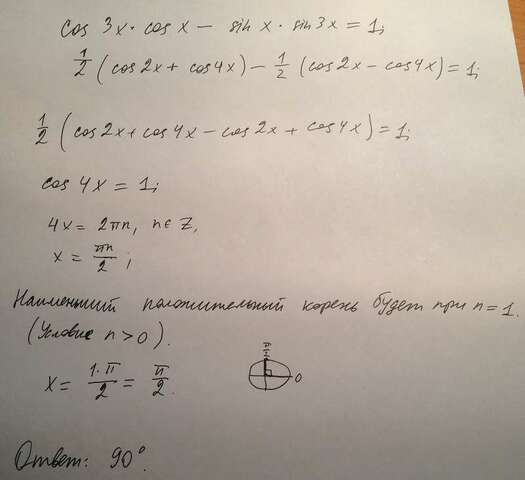 cos 3x · cos x − sin x · sin 3x = 1;
1/2 (cos 2x + cos 4x) − 1/2 (cos 2x − cos 4x) = 1;
1/2 (cos 2x + cos 4x − cos 2x + cos 4x) = 1;
cos 4x = 1;
4x = 2πn, n ∈ Z,
x = πn/2 ;
Наименьший положительный корень будет при n = 1.
(Условие n > 0).
x = 1·π/2 = π/2.
π/2
0
Ответ: 90°.